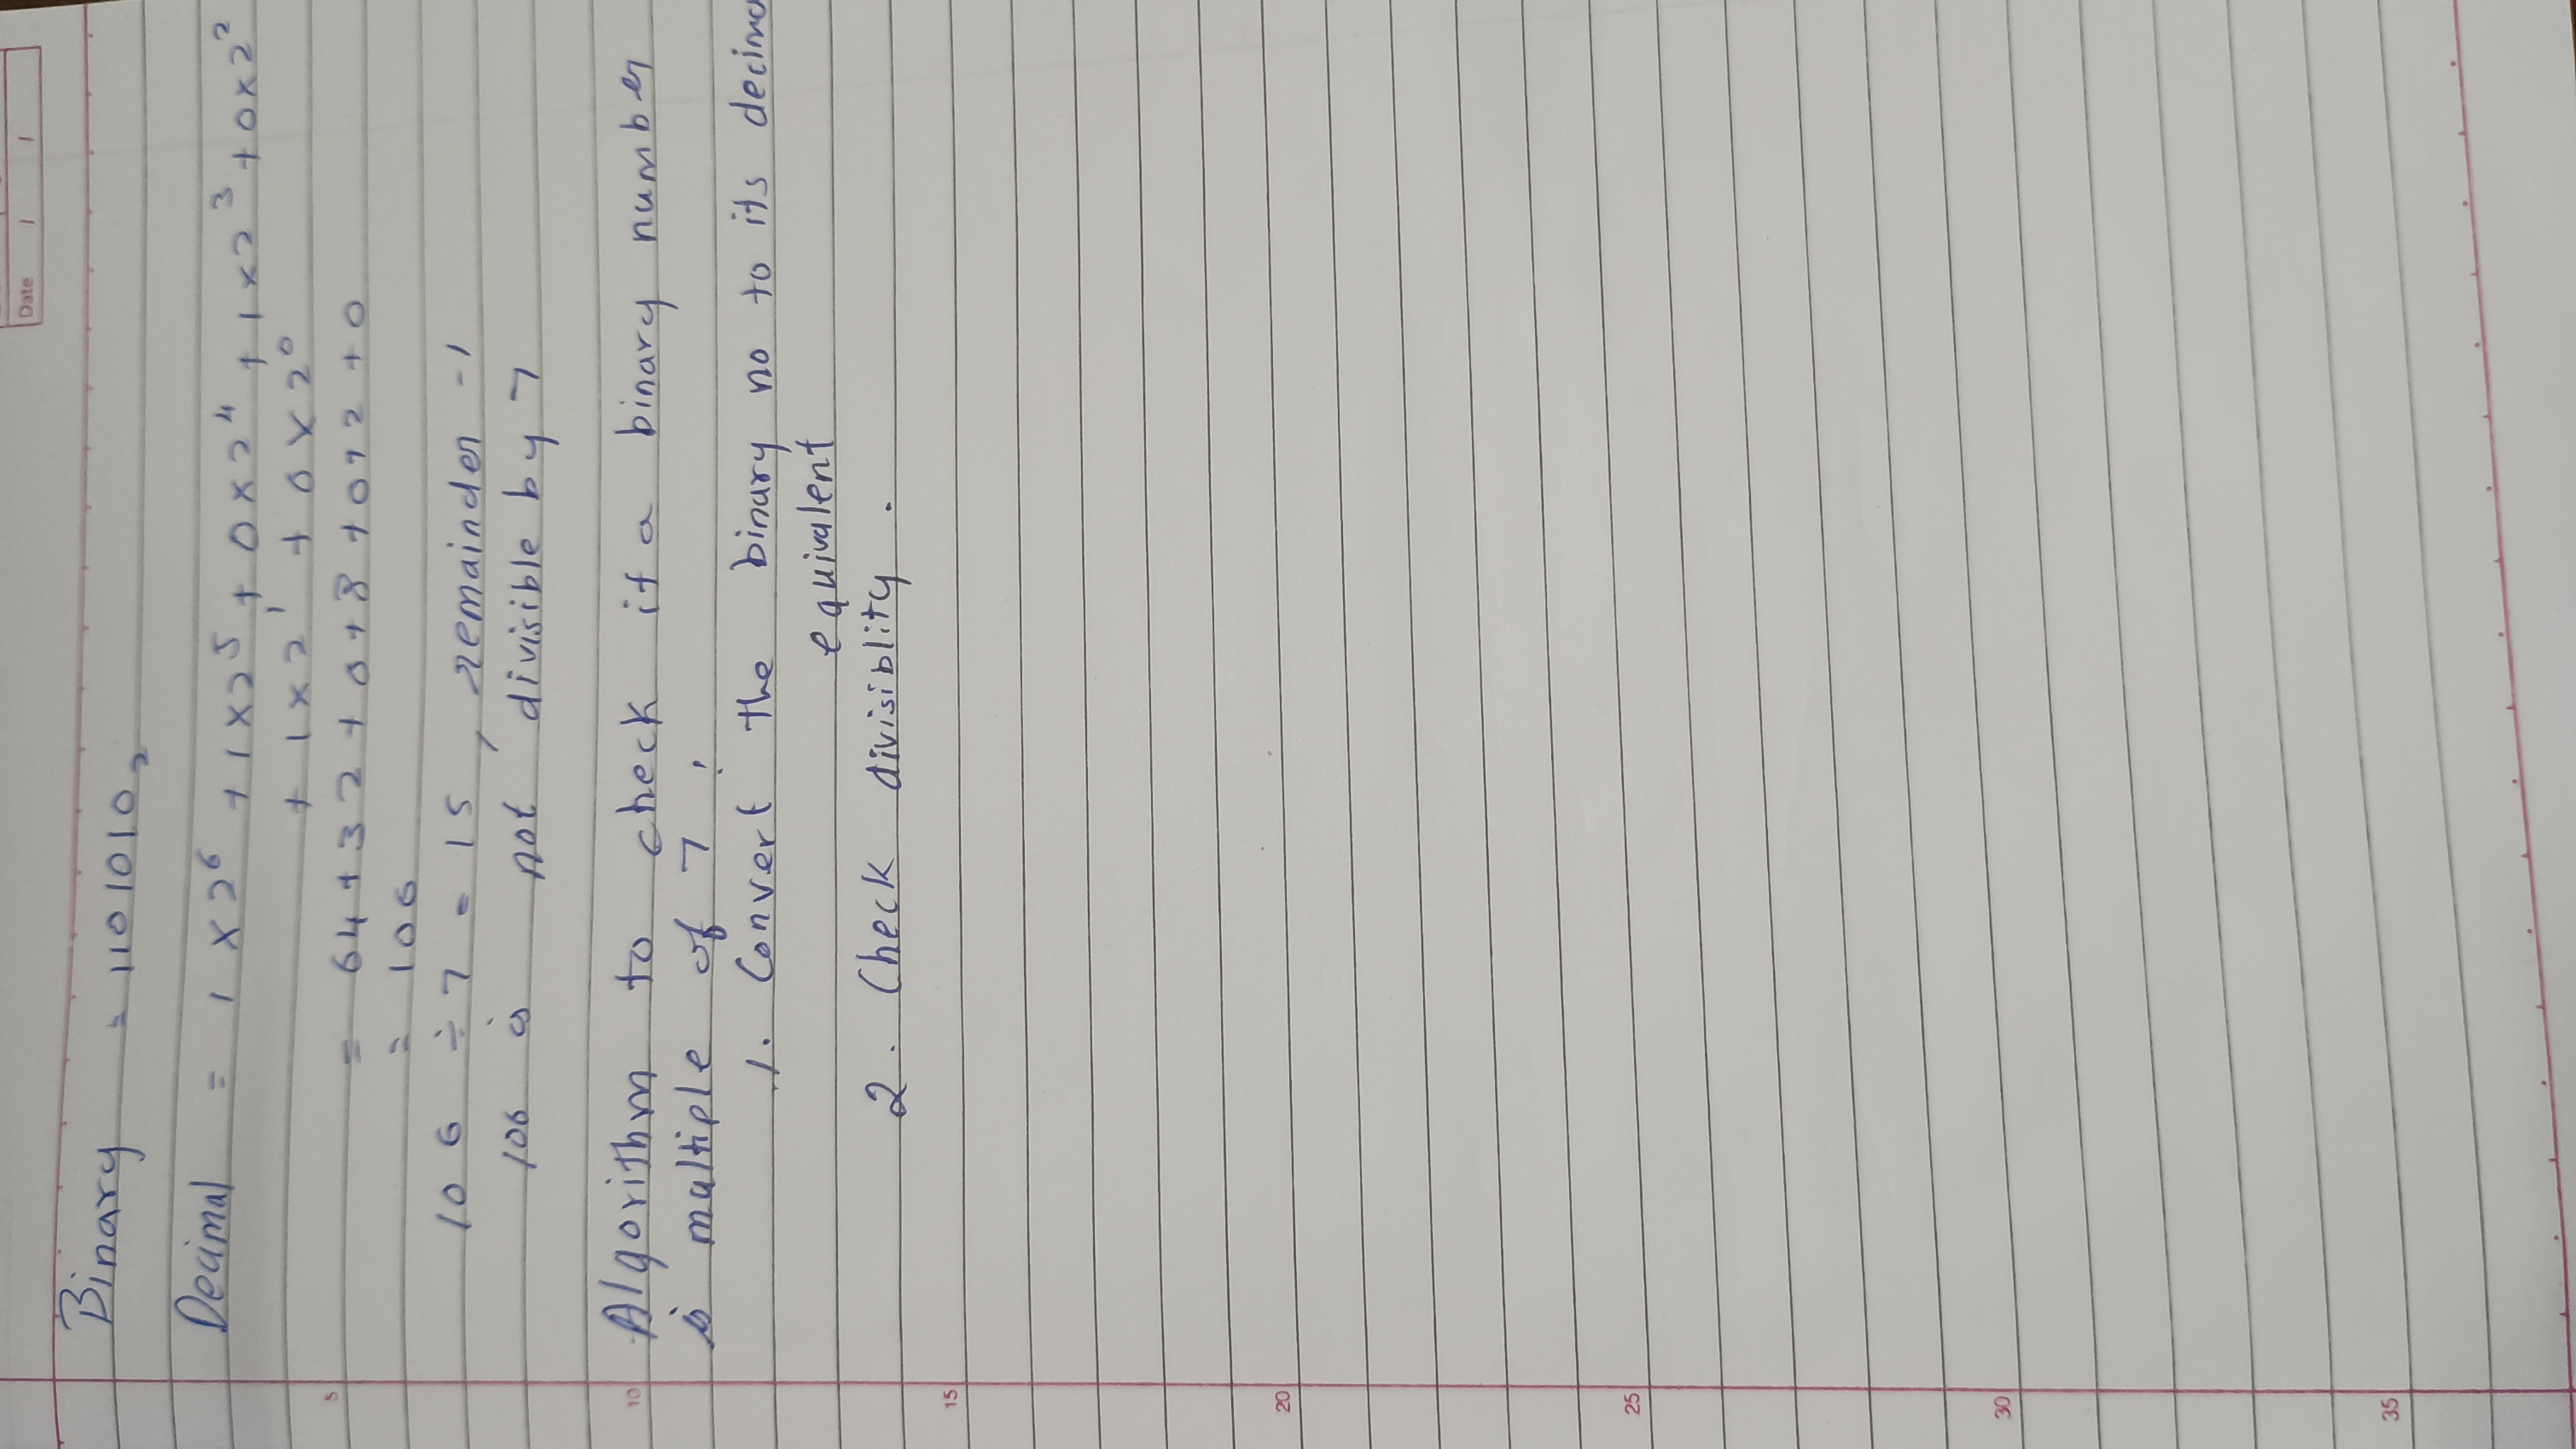 Date / /
Binary = 1101010₂
Decimal = 1 × 2⁶ + 1 × 2⁵ + 0 × 2⁴ + 1 × 2³ + 0 × 2²
+ 1 × 2¹ + 0 × 2⁰
= 64 + 32 + 0 + 8 + 0 + 2 + 0
= 106
5
106 ÷ 7 = 15, remainder - 1
106 is not divisible by 7
10
Algorithm to check if a binary number
is multiple of 7 :
1. Convert the binary no to its decima
equivalent
2. Check divisiblity .
15
20
25
30
35